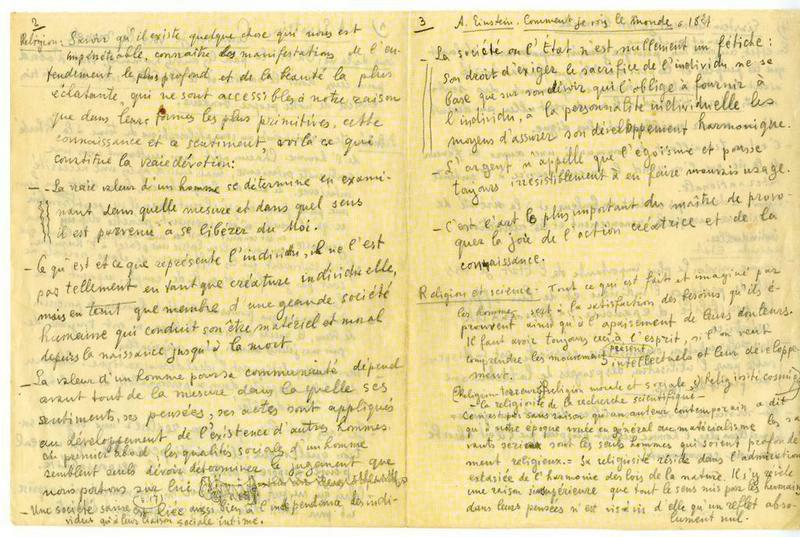 2
Religion: Savoir qu'il existe quelque chose qui nous est
impénétrable, connaître les manifestations de l'en-
tendement le plus profond et de la beauté la plus
éclatante, qui ne sont accessibles à notre raison
que dans leurs formes les plus primitives, cette
connaissance et ce sentiment, voilà ce qui
constitue la vraie dévotion:
- La vraie valeur d'un homme se détermine en exami-
nant dans quelle mesure et dans quel sens
il est parvenu à se libérer du Moi.
- Ce qu'est et ce que représente l'individu, il ne l'est
pas tellement en tant que créature individuelle,
mais en tant que membre d'une grande société
humaine qui conduit son être matériel et moral
depuis la naissance jusqu'à la mort
- La valeur d'un homme pour sa communauté dépend
avant tout de la mesure dans laquelle ses
sentiments, ses pensées, ses actes sont appliqués
au développement de l'existence d'autres hommes.
Au premier abord, les qualités sociales d'un homme
semblent seules devoir déterminer le jugement que
nous portons sur lui.
- Une société saine est liée aussi bien à l'indépendance des indi-
vidus qu'à leur liaison sociale intime.
3 A. Einstein. Comment je vois le monde
- La société ou l'État n'est nullement un fétiche:
son droit d'exiger le sacrifice de l'individu ne se
base que sur son devoir qui l'oblige à fournir à
l'individu, à la personnalité individuelle les
moyens d'assurer son développement harmonique.
- L'argent n'appelle que l'égoïsme et pousse
toujours irrésistiblement à en faire mauvais usage.
- C'est l'art le plus important du maître de provo-
quer la joie de l'action créatrice et de la
connaissance.
Religion et science - Tout ce qui est fait et imaginé par
les hommes sert à la satisfaction des besoins, qu'ils é-
prouvent ainsi qu'à l'apaisement de leurs douleurs.
Il faut avoir toujours ceci à l'esprit, si l'on veut
comprendre les mouvements intellectuels et leur développe
ment.
Religion terreur, religion morale et sociale, Religiosité cosmique
- La religiosité de la recherche scientifique -
Ce n'est pas sans raison qu'un auteur contemporain a dit
qu'à notre époque vouée en général au matérialisme les sa
vants sérieux sont les seuls hommes qui soient profondé
ment religieux. = Sa religiosité réside dans l'admiration
extasiée de l'harmonie des lois de la nature. Il s'y révèle
une raison si supérieure que tout le sens mis par les humains
dans leurs pensées n'est vis à vis d'elle qu'un reflet abso-
lument nul.